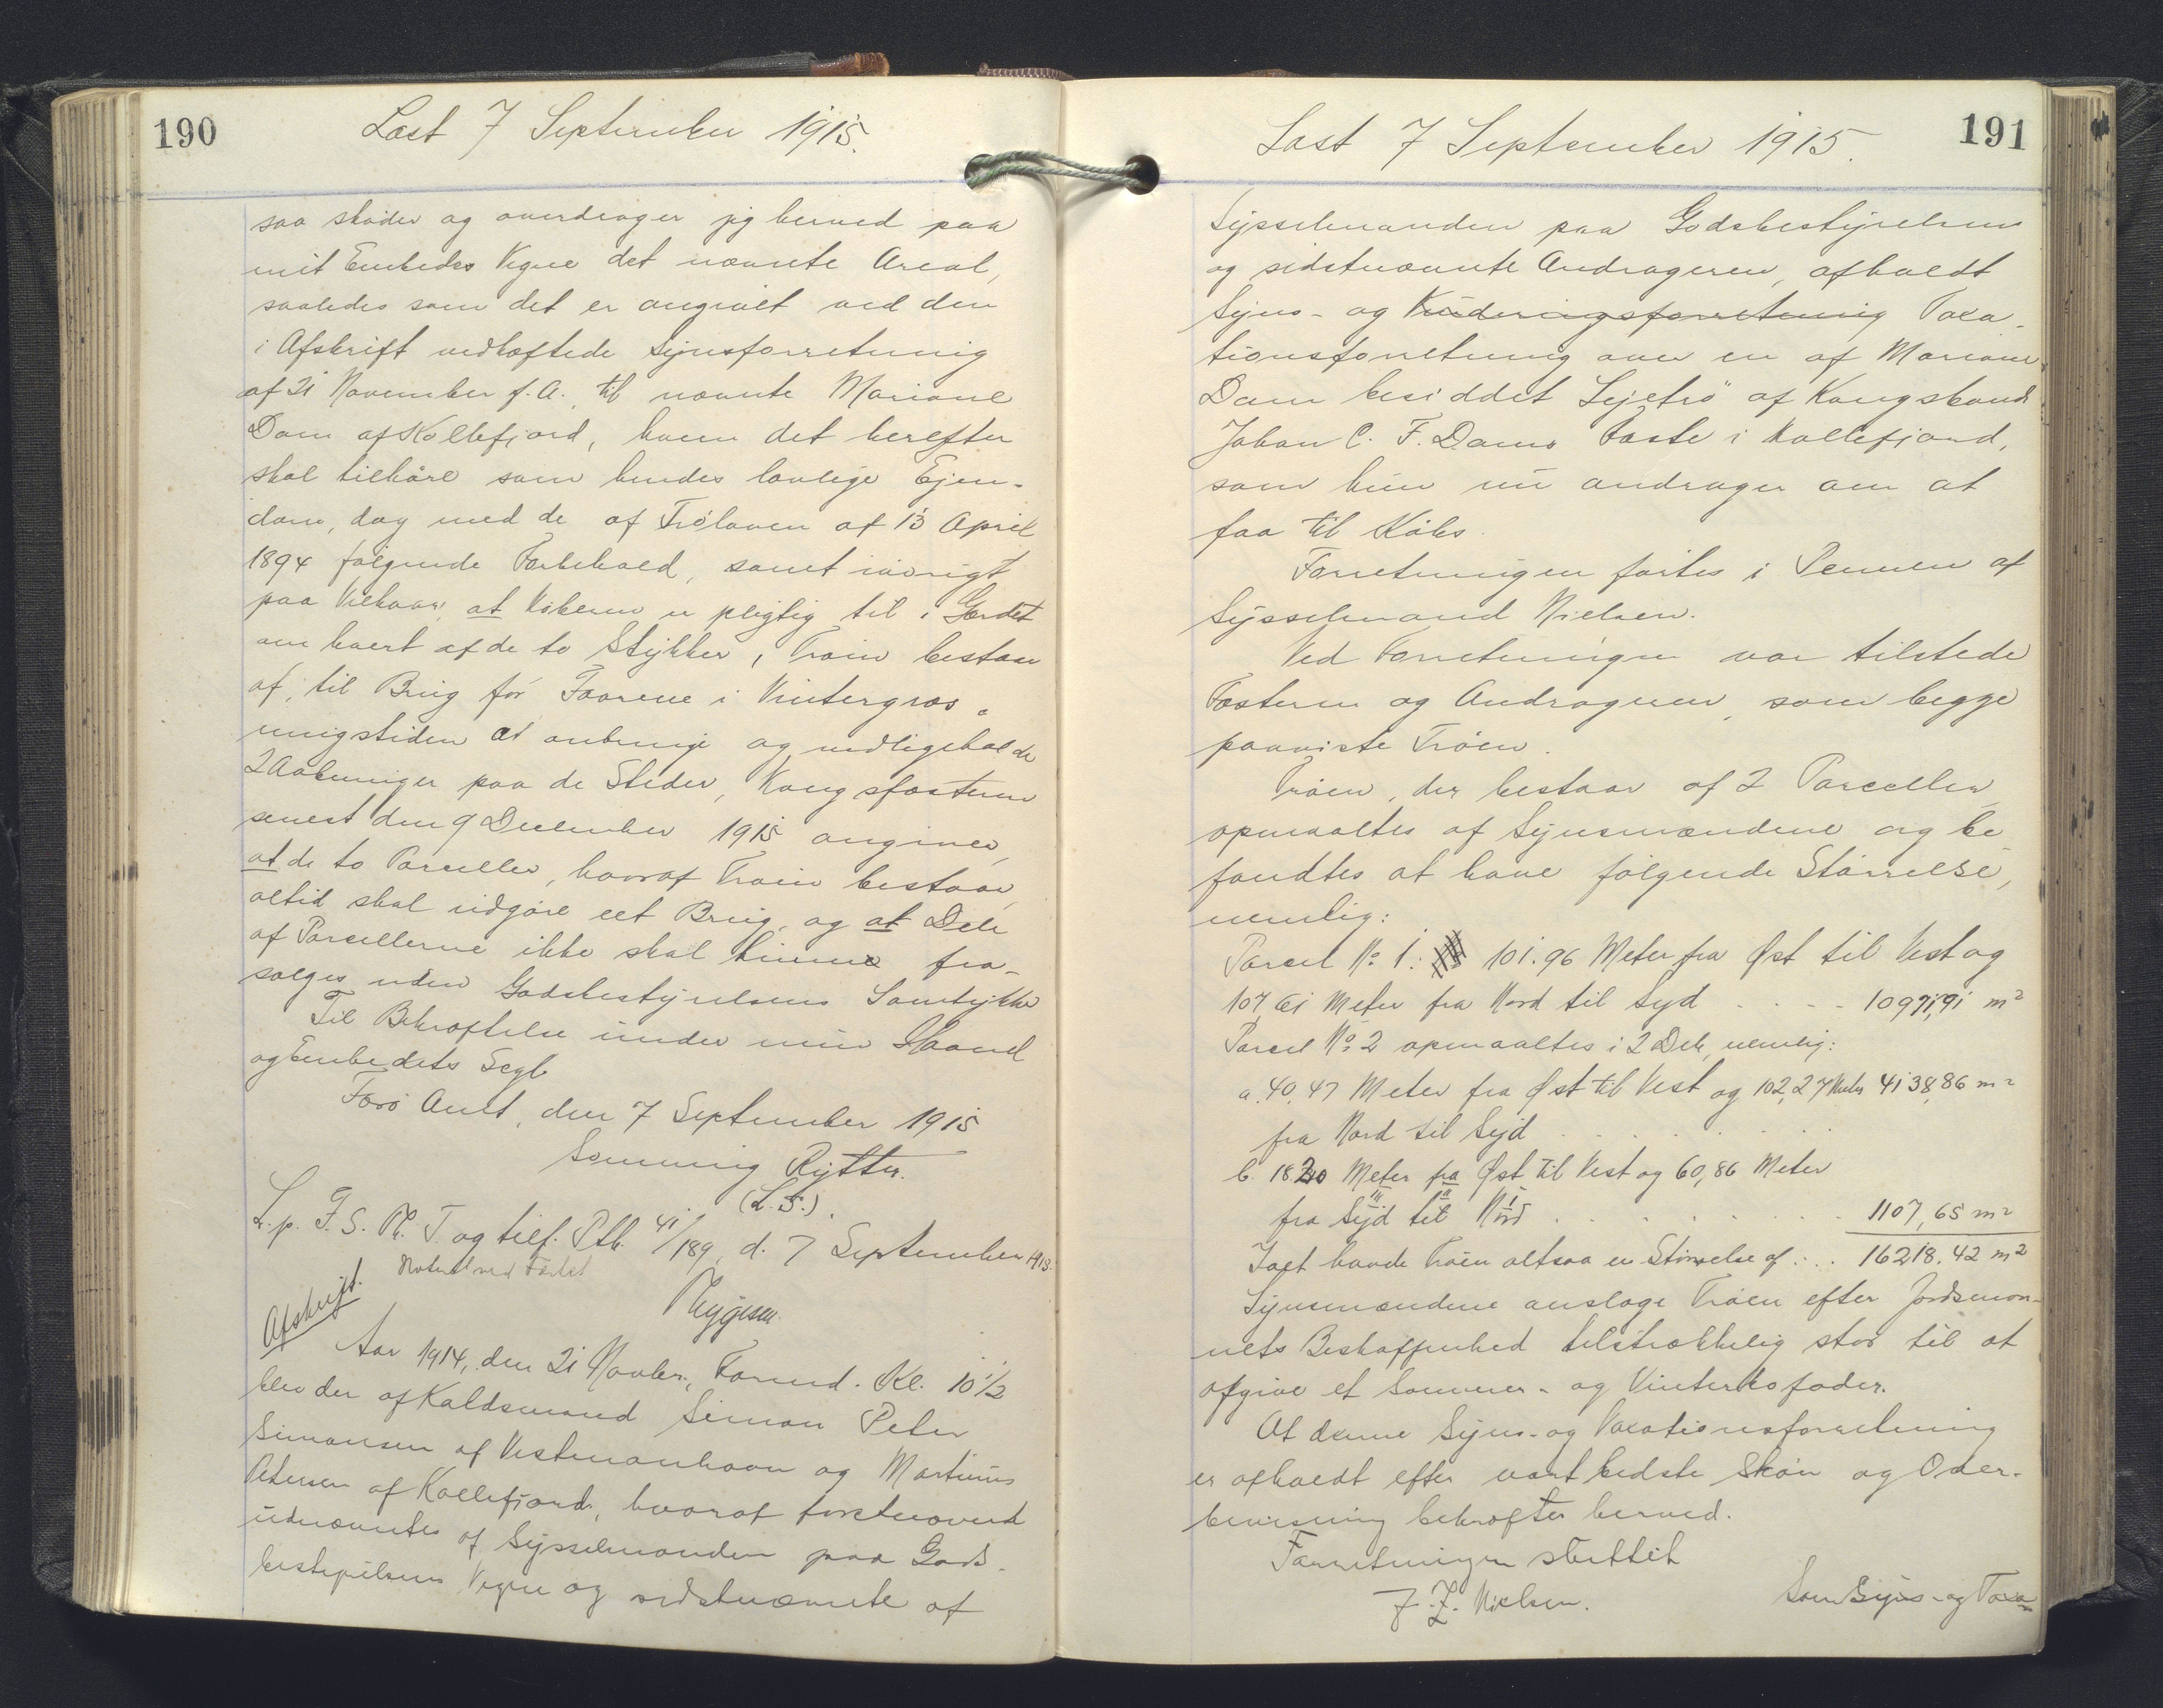 190
Læst 7 September 1915.
saa skøder og overdrager jeg herved paa
mit Embedes Vegne det nævnte Areal,
saaledes som det er angivet ved den
i Afskrift vedhæftede Synsforretning
af 21 November f. A. til nævnte Mariane
Dam af Kollefjord, hvem det herefter
skal tilhøre som hendes lovlige Ejen-
dom, dog med de af Trøloven af 13 April
1894 følgende Forbehold, samt iøvrigt
paa Vilkaar, at Køberen er pligtig til i Gærdet
om hvert af de to Stykker, Trøen bestaar
af, til Brug for Faarene i Vintergræs-
ningstiden at anbringe og vedligeholde
2 Aabninger paa de Steder, Kongsfæsteren
senest den 9 December 1915 angiver,
at de to Parceller, hvoraf Trøen bestaar,
altid skal udgøre eet Brug, og at Dele
af Parcellerne ikke skal kunne fra-
sælges uden Godsbestyrelsens Samtykke
Til Bekræftelse under min Haand
og Embedets Segl
Færø Amt, den 7 September 1915
Semming Rytter.
(L.S.).
L. p. F. S. Th. T. og tilf. Ptb. 41/189, d. 7 September 1915.
Noteret ved Fæstet
Thygesen.
Afskrift.
Aar 1914, den 21 Novbr., Formd. Kl. 10 1/2
blev der af Kaldsmand Simon Peter
Simonsen af Vestmanhavn og Martinus
Petersen af Kollefjord, hvoraf førstnævnt
udnævntes af Sysselmanden paa Gods-
bestyrelsens Vegne og sidstnævnte af
191
Læst 7 September 1915.
Sysselmanden paa Godsbestyrelsens
og sidstnævnte Andrageren, afholdt
Syns- og Vurderingsforretning Taxa-
tionsforretning over en af Mariane
Dam besiddet Lejetrø af Kongsbonde
Johan C. F. Dams Fæste i Kollefjord,
som hun nu andrager om at
faa til Købs.
Forretningen førtes i Pennen af
Sysselmand Nielsen.
Ved Forretningen var tilstede
Fæsteren og Andrageren, som begge
paaviste Trøen.
Trøen, der bestaar af 2 Parceller,
opmaaltes af Synsmændene og be-
fandtes at have følgende Størrelse,
nemlig:
Parcel No 1: 101.96 Meter fra Øst til Vest og
107,61 Meter fra Nord til Syd . . . . 10971,91 m2
Parcel No 2 opmaaltes i 2 Dele, nemlig:
a. 40,47 Meter fra Øst til Vest og 102,27 Meter 4138,86 m2
fra Nord til Syd . . . . . .
b. 18,20 Meter fra Øst til Vest og 60,86 Meter
fra Syd til Nord . . . . . . . 1107,65 m2
I alt havde Trøen altsaa en Størrelse af . . . 16218.42 m2
Synsmændene ansloge Trøen efter Jordsmon-
nets Beskaffenhed tilstrækkelig stor til at
afgive et Sommer- og Vinterkofoder.
At denne Syns- og Taxationsforretning
er afholdt efter vort bedste Skøn og Over-
bevisning bekræftes herved.
Forretningen sluttet
J. Z. Nielsen. Som Syns- og Taxa-